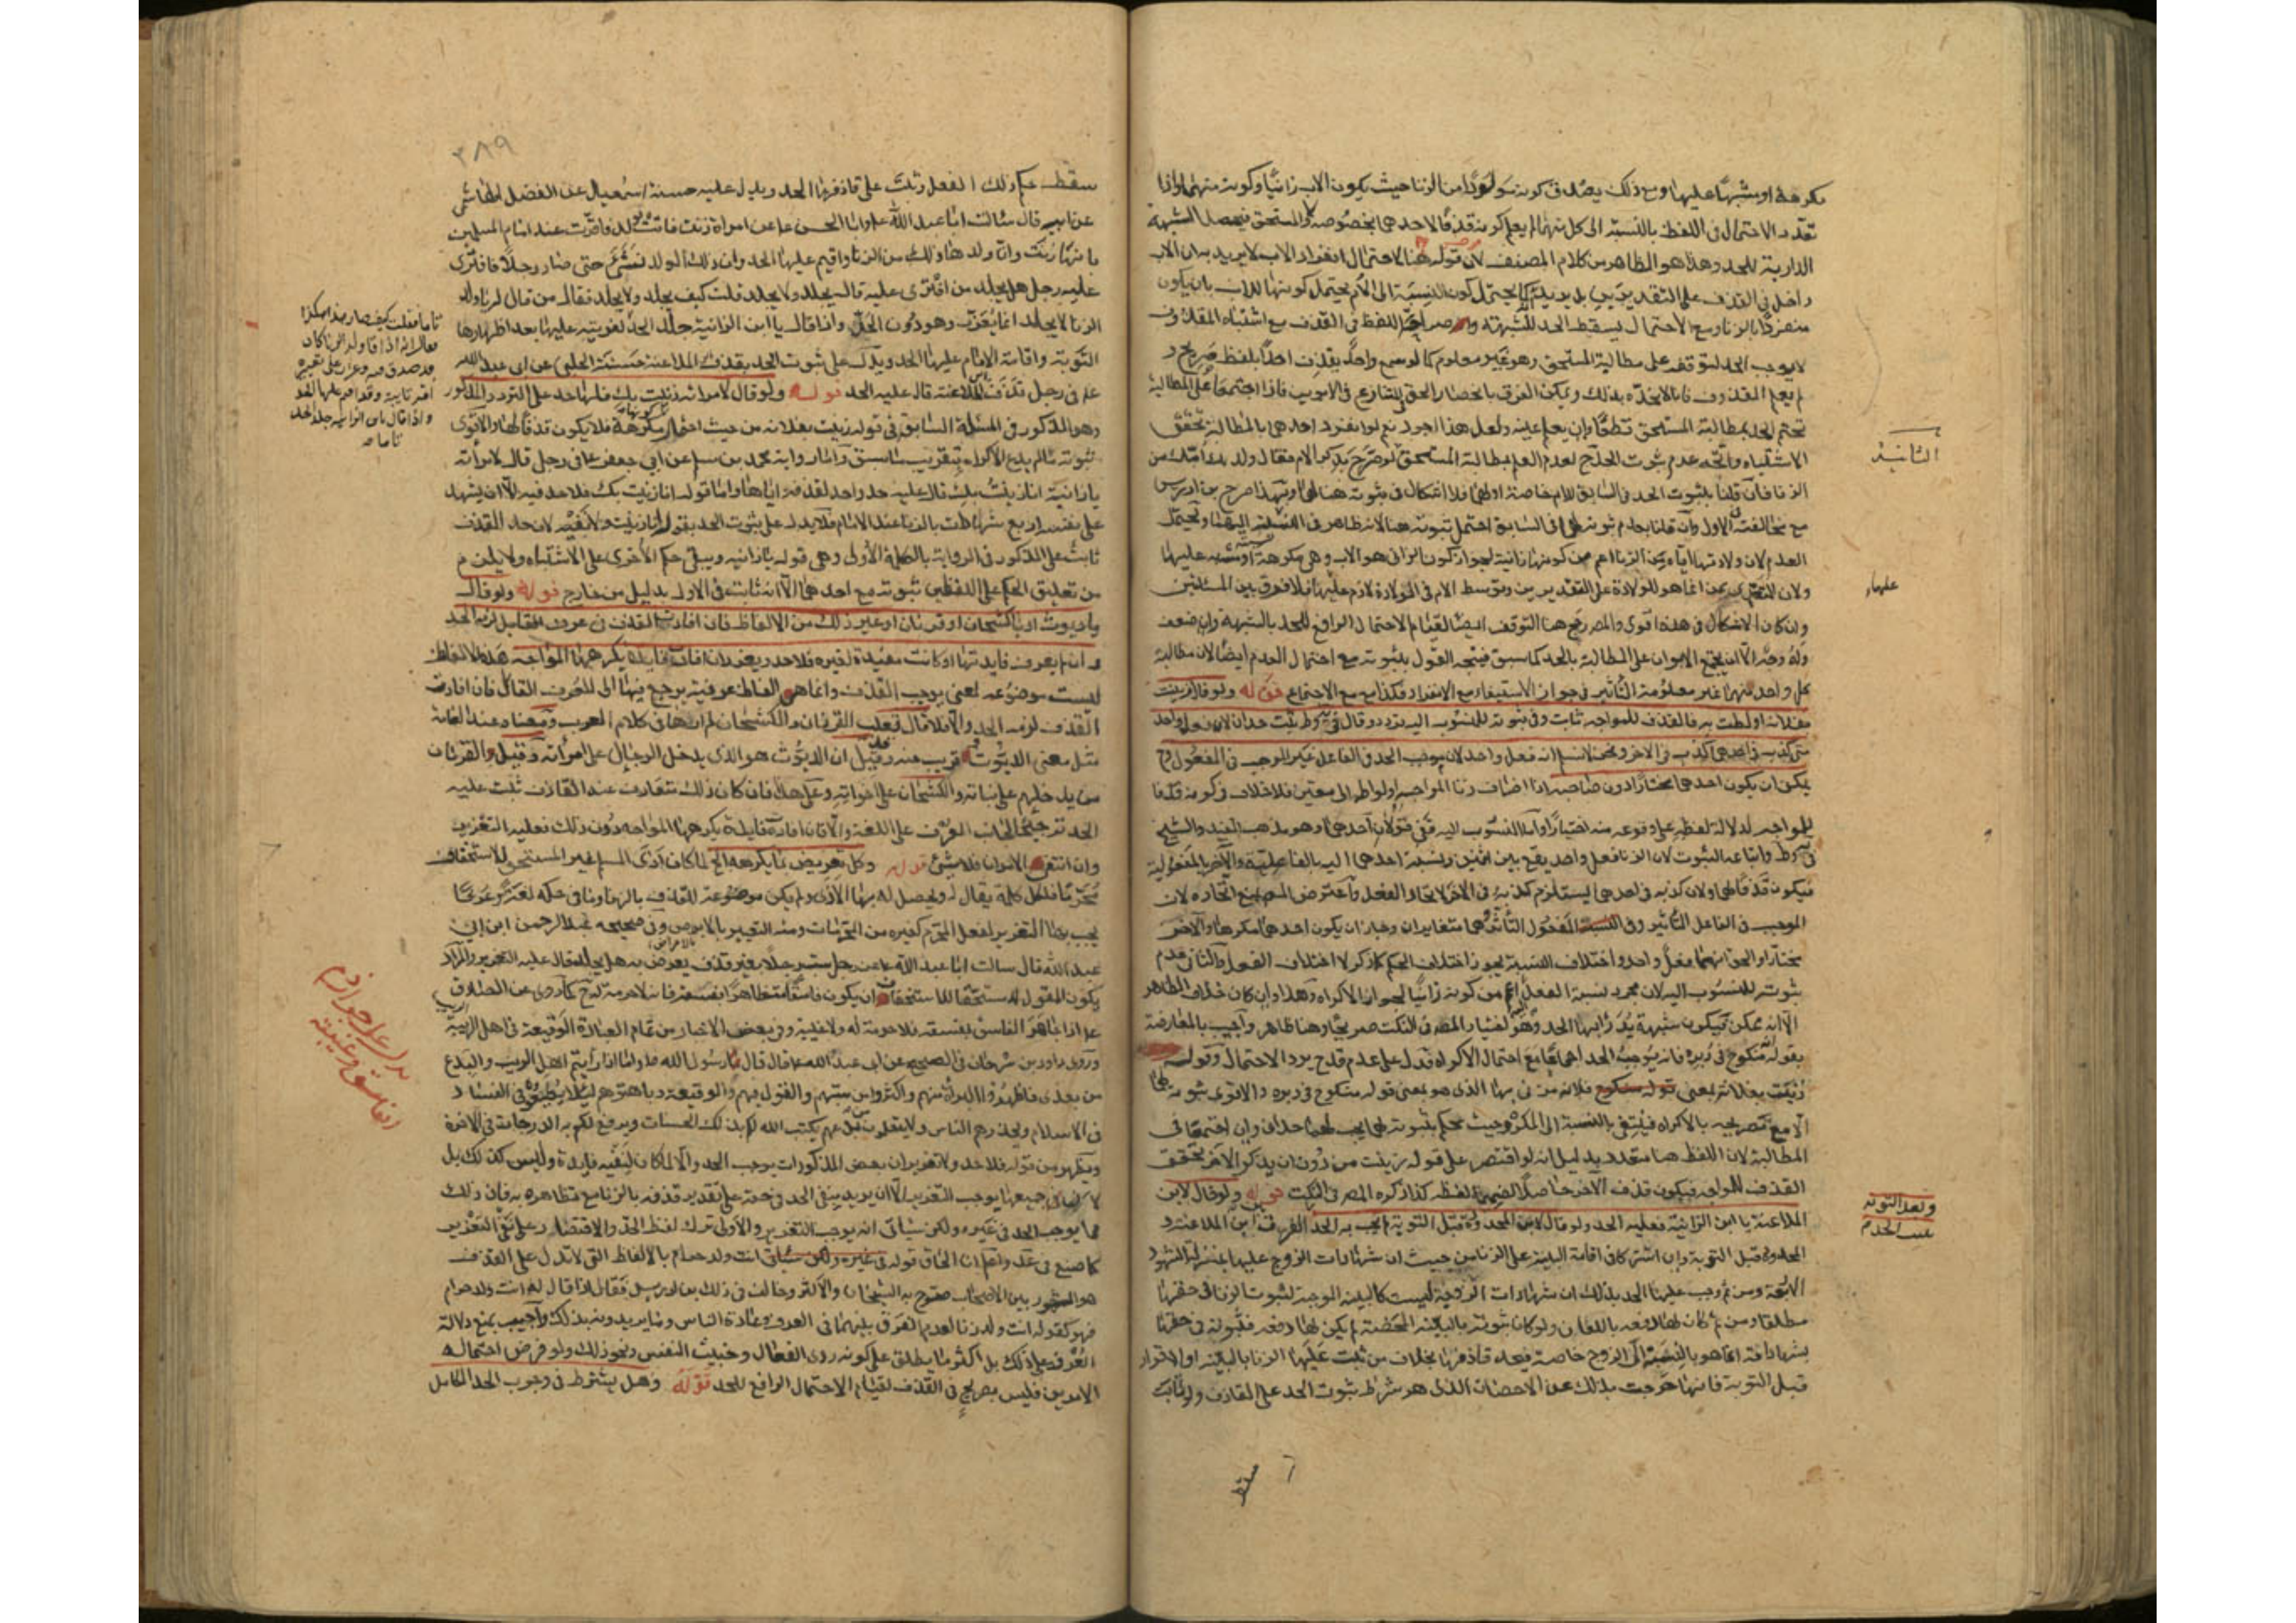 مكرهة او مشبها عليها ومع ذلك يصدق كونه مولودا من الزنا حيث يكون الاب زانيا وكونه منهما واذا
تعدد الاحتمال في اللفظ بالنسبة الى كل منهما لم يعلم كونه قذفا لاحدهما بخصوصه والمستحق فيحصل الشبهة
الدارية للحد وهذا هو الظاهر من كلام المصنف لان قوله هنا لاحتمال انفراد الاب لا يريد به ان الاب
داخل في القذف على التقديرين بل يريد انه كما يحتمل كون النسبة الى الام يحتمل كونها للاب بان يكون
منفردا بالزنا ومع الاحتمال يسقط الحد للشبهة اللفظ في القذف مع اشتباه المقذوف
لا يوجب الحد لتوقفه على مطالبة المستحق وهو غير معلوم كما لو سمع واحدا يقذف احدا بلفظ صريح و
لم يعلم المقذوف فانا لا نحده بذلك ويمكن الفرق بانحصار الحق في الابوين فاذا اجتمعا على المطالبة
تحتم الحد بمطالبة المستحق قطعا وان لم يعلم عينه ولعل هذا اجود نعم لو انفرد احدهما بالمطالبة تحقق
الاشتباه واتجه عدم ثبوت الحد لعدم العلم بمطالبة المستحق لو صرح بذكر الام فقال ولدتك امك من
الزنا فان قلنا بثبوت الحد في السابق للام خاصة اولهما فلا اشكال في ثبوته هنا لها وبهذا صرح بن ادريس
مع مخالفته في الاول وان قلنا بعدم ثبوته في السابق احتمل ثبوته هنا لانه ظاهر في النسبة اليها ويحتمل
العدم لان ولادتها اياه من الزنا اعم من كونها زانية لجواز كون الزاني هو الاب وهي مكرهة او مشتبه عليها
ولان التعدي بمن انما هو للولادة على التقديرين وتوسط الام في الولادة لازم عليهما فلا فرق بين المسئلتين
وان كان الاشكال في هذه اقوى والمص رجح هنا التوقف ايضا لقيام الاحتمال الرافع للحد بالشبهة وان ضعف
وله وجه الا ان يجتمع الابوان على المطالبة بالحد كما سبق فيتجه القول بثبوته مع احتمال العدم ايضا لان مطالبة
كل واحد منهما غير معلومة التاثير في جواز الاستيفاء مع الانفراد فكذا مع الاجتماع قوله ولو قال زنيت
بفلانة او لطت به فالقذف للمواجه ثابت وفي ثبوته للمنسوب اليه تردد وقال في ط يثبت حدان لانه فعل واحد
متى كذب في احدهما كذب في الاخر ونحن لا نسلم انه فعل واحد لان موجب الحد في الفاعل غير الموجب في المفعول وح
يمكن ان يكون احدهما مختارا دون صاحبه اذا اضاف زنا المواجه او لواطه الى معين فلا خلاف في كونه قذفا
للمواجه لدلالة لفظه على وقوعه منه اختيارا واما المنسوب اليه ففي قولان احدهما وهو مذهب المفيد والشيخ
في ط واتباعه الثبوت لان الزنا فعل واحد يقع بين اثنين ونسبة احدهما اليه بالفاعلية والاخر بالمفعولية
فيكون قذفا لهما ولان كذبه في احدهما يستلزم كذبه في الاخر لاتحاد الفعل واعترض المص بمنع اتحاده لان
الموجب في الفاعل التاثير وفي المفعول التاثر وهما متغايران وجاز ان يكون احدهما مكرها والاخر
مختارا والحق انهما فعل واحد واختلاف النسبة يجوز اختلاف الحكم كما ذكر لا اختلاف الفعل والثاني عدم
ثبوته للمنسوب اليه لان مجرد نسبة الفعل اعم من كونه زانيا لجواز الاكراه وهذا وان كان خلاف الظاهر
الا انه ممكن فيكون شبهة يدرأ بها الحد وهو اختيار المص في النكت صريحا وهنا ظاهرا واجيب بالمعارضة
بقوله منكوح في دبره فانه يوجب الحد اجماعا مع احتمال الاكراه فدل على عدم قدح هذا الاحتمال وقوله
زنيت بفلانة بمعنى فلانة مزني بها الذي هو بمعنى قوله منكوح في دبره والاقوى ثبوته لهما
الا مع تصريحه بالاكراه فينتفي بالنسبة الى المكره وحيث يحكم بثبوته لهما يجب لهما حدان وان اجتمعا في
المطالبة لان اللفظ هنا متعدد بدليل انه لو اقتصر على قوله زنيت من دون ان يذكر الاخر تحقق
القذف للمواجه فيكون قذف الاخر حاصلا لفظه كذا ذكره المص في النكت قوله ولو قال لابن
الملاعنة يا ابن الزانية فعليه الحد ولو قال لابن المحدودة قبل التوبة لم يجب به الحد الفرق بين ابن الملاعنة و
المحدودة قبل التوبة وان اشتركا في اقامة البينة على الزنا من حيث ان شهادات الزوج عليها بمنزلة الشهود
الاربعة ومن ثم وجب عليها الحد بذلك ان شهادات الزوجية ليست كالبينة الموجبة لثبوت الزنا في حقها
مطلقا ومن ثم كان لها دفعه باللعان ولو كان ثبوته بالبينة المحضة لم يكن لها دفعه فثبوته في حقها
بشهاداته انما هو بالنسبة الى الزوج خاصة فيحد قاذفها بخلاف من ثبت عليها الزنا بالبينة او الاقرار
قبل التوبة فانها خرجت بذلك عن الاحصان الذي هو شرط ثبوت الحد على القاذف ولو تابت
الثانية
عليها
وبعد التوبة
يجب الحد م
سقط
٣٨٩
سقط حكم ذلك الفعل وثبت على قاذفها الحد ويدل عليه حسنة اسمعيل عن الفضل الهاشمي
عن ابيه قال سالت ابا عبد الله وابا الحسن عن امراة زنت فاتت بولد فاقرت عند امام المسلمين
بانها زنت وان ولدها ذلك من الزنا واقيم عليها الحد وان ذلك الولد نشأ حتى صار رجلا فافترى
عليه رجل هل يجلد من افترى عليه قال يجلد ولا يجلد قلت كيف يجلد ولا يجلد فقال من قال له يا ولد
الزنا لا يجلد انما يعزر وهو دون الحد واذا قال يا ابن الزانية جلد الحد لفريته عليها بعد اظهارها
التوبة واقامة الامام عليها الحد ويدل على ثبوت الحد بقذف الملاعنة حسنة الحلبي عن ابي عبد الله
علم في رجل قذف الملاعنة قال عليه الحد قوله ولو قال لامراته زنيت بك فلها حد على التردد المذكور
وهو المذكور في المسئلة السابق في قوله زنيت بفلانة من حيث احتمال كونها مكرهة فلا يكون قذفا لها والاقوى
ثبوته ما لم يدع الاكراه بتقريب ما سبق واما رواية محمد بن مسلم عن ابي جعفر في رجل قال لامراته
يا زانية انا زنيت بك قال عليه حد واحد لقذفه اياها واما قوله انا زنيت بك فلا حد فيه الا ان يشهد
على نفسه اربع شهادات بالزنا عند الامام فلا يدل على ثبوت الحد بقوله انا زنيت ولا نفيه لان حد القذف
ثابت على المذكور في الرواية بالكلمة الاولى وهي قوله يا زانية ويبقى حكم الاخرى على الاشتباه ولا يلزم
من تعليق الحكم على اللفظين ثبوته مع احدهما الا انه ثابت في الاول بدليل من خارج قوله ولو قال
يا ديوث او يا كشخان او قرنان او غير ذلك من الالفاظ فان افادت القذف في عرف القائل لزمه الحد
وان لم يعرف فايدتها او كانت مفيدة لغيره فلا حد ويعزر ان افادت فايدة يكرهها المواجه هذه الالفاظ
ليست موضوعة لمعنى يوجب القذف وانما هي الفاظ عرفية يرجع فيها الى العرف القائل فان افادت
القذف لزمه الحد والا فلا قال ثعلب القرنان والكشخان لم ارهما في كلام العرب ومعناه عند العامة
مثل معنى الديوث او قريب منه وقد قيل ان الديوث هو الذي يدخل الرجال على امراته وقيل والقرنان
من يدخلهم على بناته والكشخان على اخواته وعلى هذا فان كان ذلك متعارف عند القاذف ثبت عليه
الحد ترجيحا لجانب العرف على اللغة والا فان افادة فايدة يكرهها المواجه دون ذلك فعليه التعزير
وان انتفى الامران فلا شيء قوله وكل تعريض بما يكرهه الخ لما كان اذى المسلم غير المستحق للاستخفاف
محرما فكل كلمة يقال له ويحصل له بها الاذى ولم يكن موضوعة للقذف بالزنا وما في حكمه لغة وعرفا
يجب بها التعزير لفعل المحرم كغيره من المحرمات ومنه التعيير بالابرص وفي صحيحه عبد الرحمن ابن ابي
عبد الله قال سالت ابا عبد الله عن رجل سب رجلا بغير قذف يعرض به هل يجلد قال عليه التعزير والمراد
بكون المقول له مستحقا للاستخفاف ان يكون فاسقا متظاهرا بفسقه فانه لا حرمة له ح كما روى عن الصادق
اذا جاهر الفاسق بفسقه فلا حرمة له ولا غيبة وفي بعض الاخبار من تمام العبادة الوقيعة في اهل الريب
وروى داود بن سرحان في الصحيح عن ابي عبد الله قال قال رسول الله اذا رايتم اهل الريب والبدع
من بعدي فاظهروا البراءة منهم واكثروا من سبهم والقول فيهم والوقيعة وباهتوهم لئلا يطمعوا في الفساد
في الاسلام ويحذرهم الناس ولا يتعلمون من بدعهم يكتب الله لكم بذلك الحسنات ويرفع لكم به الدرجات في الاخرة
ويظهر من قوله فلا حد ولا تعزير ان بعض المذكورات يوجب الحد والا لما كان لنفيه فايدة وليس كذلك بل
جميعها يوجب التعزير الا ان يريد بنفي الحد في حقه على تقدير قذفه بالزنا مع تظاهره به فان ذلك
مما يوجب الحد في غيره ولكن سياتي انه يوجب التعزير والاولى ترك لفظ الحد والاقتصار على نفي التعزير
كما صنع في عد واعلم ان الحاق قوله انت ولد حرام بالالفاظ التي لا تدل على القذف
هو المشهور بين الاصحاب صرح به الشيخان والاكثر وخالف في ذلك فقال اذا قال له انت ولد حرام
فهو كقوله انت ولد زنا لعدم الفرق بينهما في العرف وعادة الناس وما يريدونه بذلك واجيب بمنع دلالة
العرف على ذلك بل اكثر ما يطلق على كونه ردى الفعال وخبيث النفس ونحو ذلك ولو فرض احتماله
الامرين فليس بصريح في القذف لقيام الاحتمال الرافع للحد قوله وهل يشترط في وجوب الحد الكامل
يدل على جواز
الفاسق وغيبته